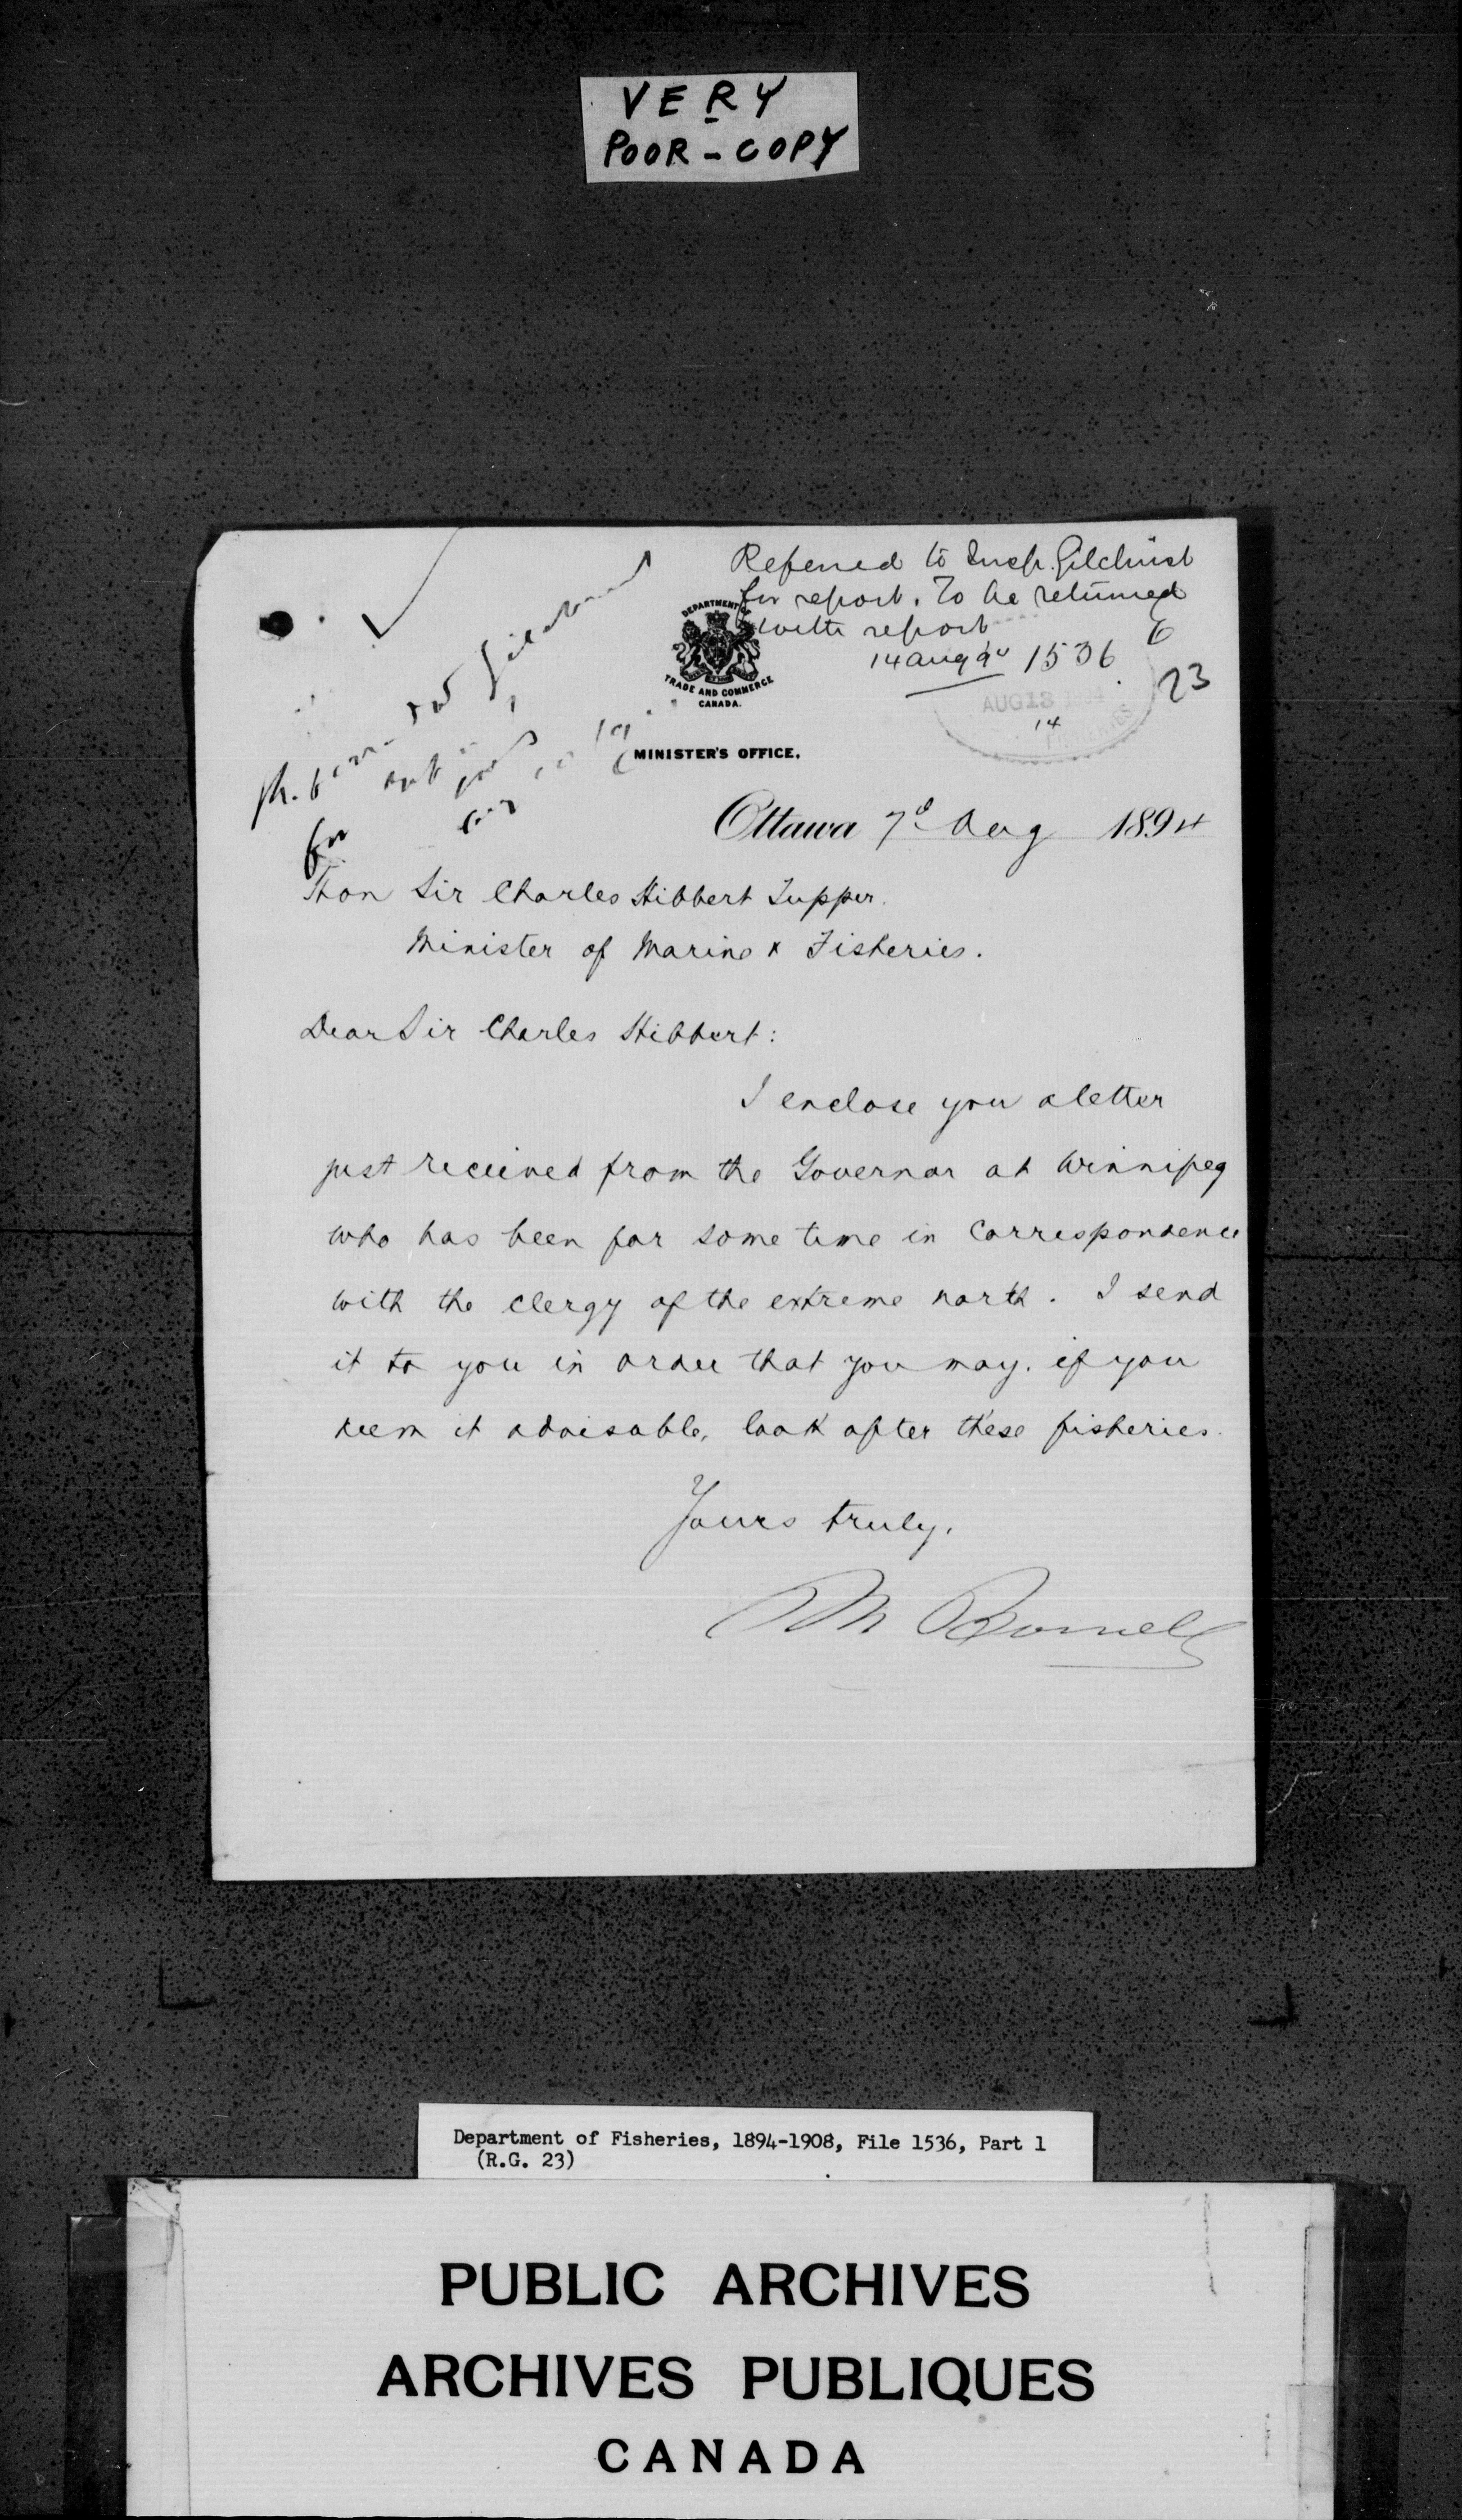 VERY
POOR - COPY
Referred to Insp. Gilchrist
for report. To be returned
with report
14 Aug 94 1536
23
AUG 13
14
DEPARTMENT OF
TRADE AND COMMERCE
CANADA.
MINISTER'S OFFICE.
for
Ottawa 7th Aug 1894
Hon Sir Charles Hibbert Tupper.
Minister of Marine & Fisheries.
Dear Sir Charles Hibbert:
I enclose you a letter
just received from the Governor at Winnipeg
who has been for some time in correspondence
with the clergy of the extreme north. I send
it to you in order that you may, if you
deem it advisable, look after these fisheries.
Yours truly,
M Bowell
Department of Fisheries, 1894-1908, File 1536, Part 1
(R.G. 23)
PUBLIC ARCHIVES
ARCHIVES PUBLIQUES
CANADA